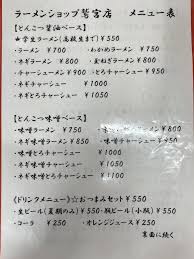 ラーメンショップ鷲宮店 メニュー表
【とんこつ醤油ベース】
★学生ラーメン(高校生まで) ¥550
・ラーメン ¥700 ・わかめラーメン ¥750
・ネギラーメン ¥800 ・金ねぎラーメン ¥800
・チャーシューメン ¥900 ・とろチャーシュー ¥950
・ネギチャーシュー ¥1000
・ネギとろチャーシュー ¥1050
【とんこつ味噌ベース】
・味噌ラーメン ¥750
・味噌ネギラーメン ¥850
・味噌チャーシュー ¥950
・味噌とろチャーシュー ¥1000
・味噌ネギチャーシュー ¥1050
・味噌ネギとろチャーシュー ¥1100
《ドリンクメニュー》☆おつまみセット ¥550
・生ビール(夏期のみ) ¥550・瓶ビール(小瓶) ¥550
・コーラ ¥250 ・オレンジジュース ¥250
裏面に続く